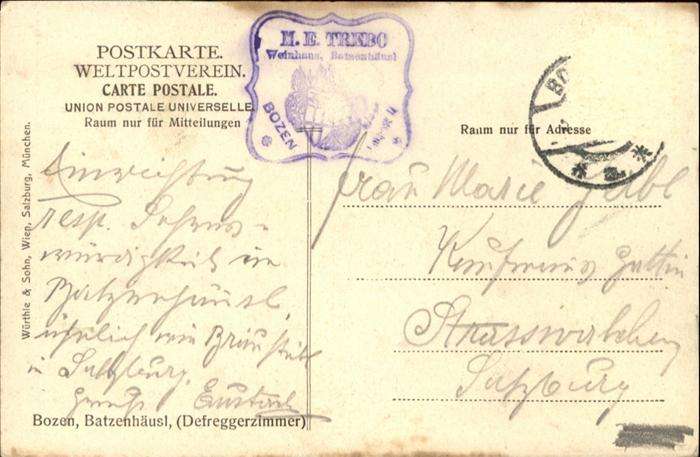 POSTKARTE.
WELTPOSTVEREIN.
CARTE POSTALE.
UNION POSTALE UNIVERSELLE.
Raum nur für Mitteilungen
M. E. TREBO
Weinhaus, Batzenhäusl
BOZEN
Raum nur für Adresse
BO
Würthle & Sohn, Wien, Salzburg, München.
Einrichtung
resp. Sehens-
würdigkeit im
Batzenhäusl
ähnlich wie Bräustübl
in Salzburg.
Frau Marie
Kaufmanns Gattin
Strasswalchen
Salzburg
Bozen, Batzenhäusl, (Defreggerzimmer)